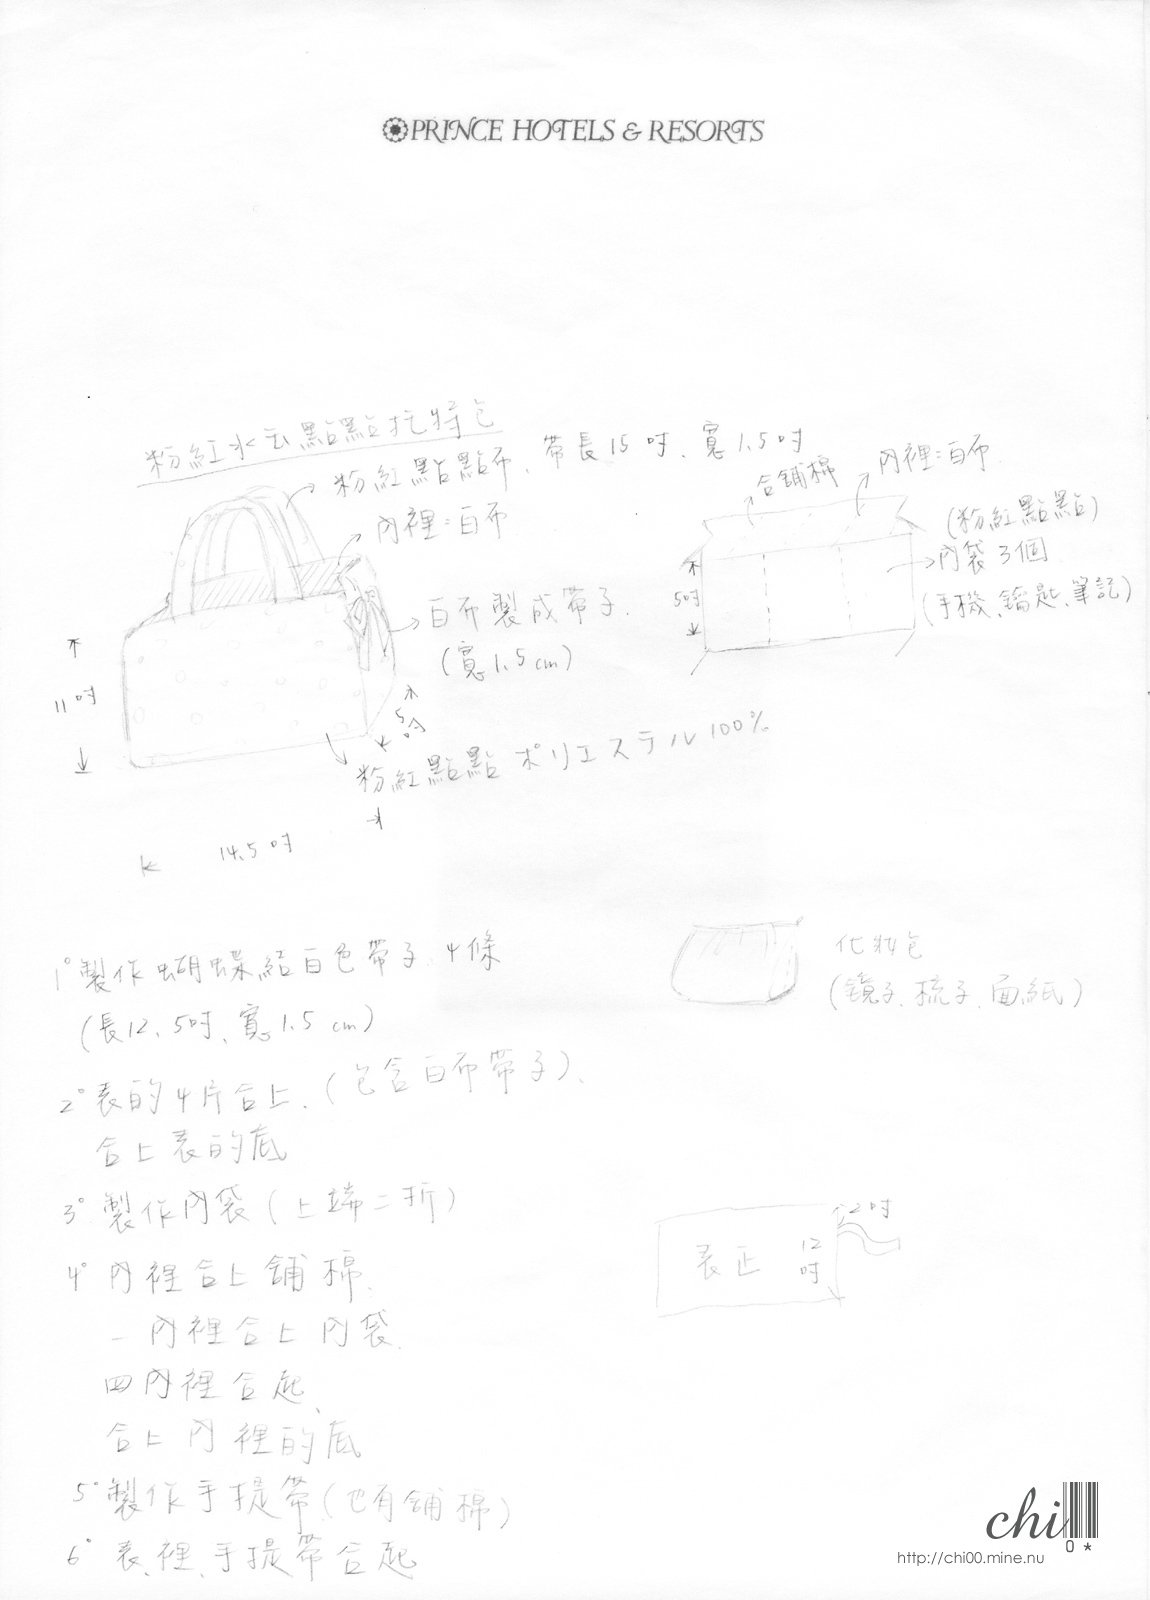 PRINCE HOTELS & RESORTS
粉紅水玉點點托特包
粉紅點點布、帶長15吋、寬1.5吋
內裡=白布
白布製成帶子.
(寬1.5cm)
11吋
5吋
粉紅點點 ポリエステル100%
14.5吋
合鋪棉
內裡=白布
(粉紅點點)
內袋3個
(手機、鑰匙、筆記)
5吋
化妝包
(鏡子、梳子、面紙)
1°製作蝴蝶結白色帶子 4條
(長12.5吋、寬1.5cm)
2°表的4片合上.(包含白布帶子)、
合上表的底
3°製作內袋(上端二折)
4°內裡合上鋪棉.
一內裡合上內袋.
四內裡合起、
合上內裡的底
5°製作手提帶(也有鋪棉)
6°表、裡、手提帶合起
2吋
表正 12吋
chi00*
http://chi00.mine.nu